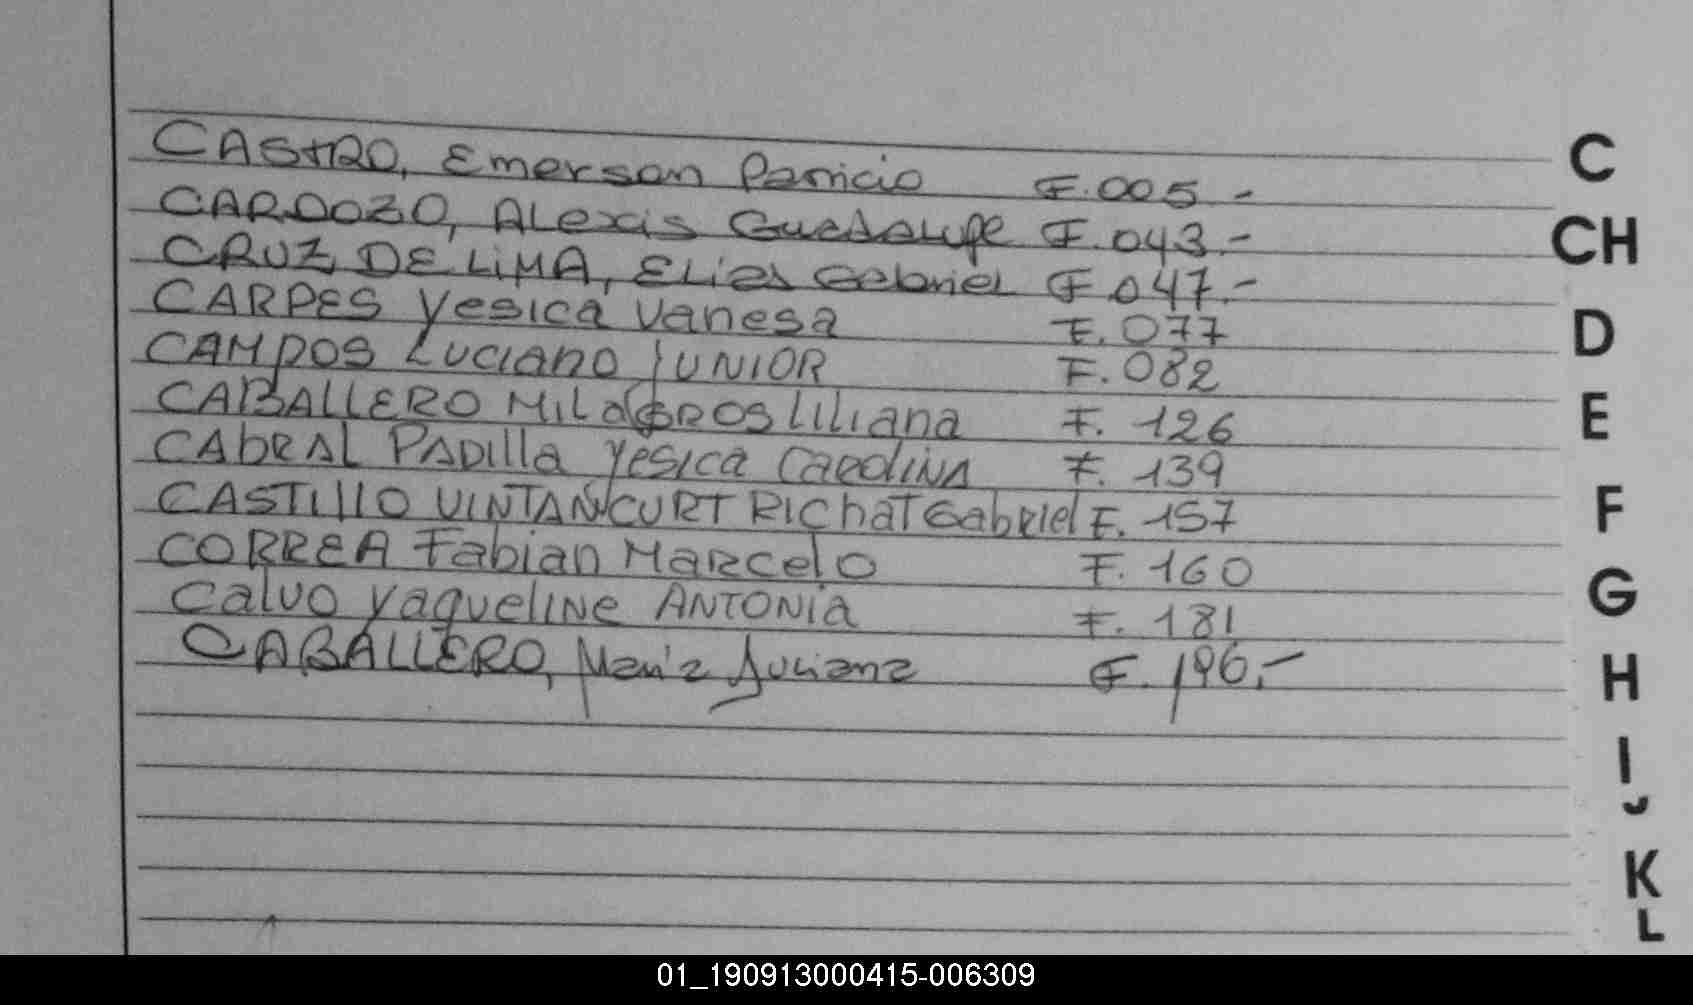 CASTRO, Emerson Patricio F.005-
CARDOZO, ALexis Guadalupe F.043-
CRUZ DE LIMA, ELias Gabriel F.047.-
CARPES Yesica Vanesa F.077
CAMPOS Luciano JUNIOR F.082
CABALLERO MILAGROS liliana F. 126
CAbRAL PADIlla Yesica CAROLINA F. 139
CASTIllO VINTANCURT RIChaT Gabriel F. 157
CORREA Fabian Marcelo F. 160
Calvo Yaqueline ANTONia F. 181
CABALLERO, María Juliana F. 196.-
C
CH
D
E
F
G
H
I
J
K
L
01_190913000415-006309